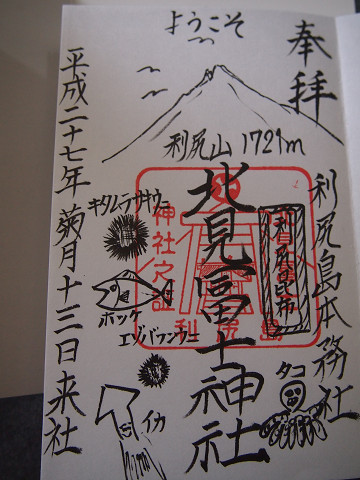 ようこそ
奉拝
利尻山 1721m
利尻島本務社
利尻昆布
北見富士神社
神社之証
利尻島
キタムラサキウニ
ホッケ
エゾバフンウニ
タコ
イカ
平成二十七年 菊月十三日来社